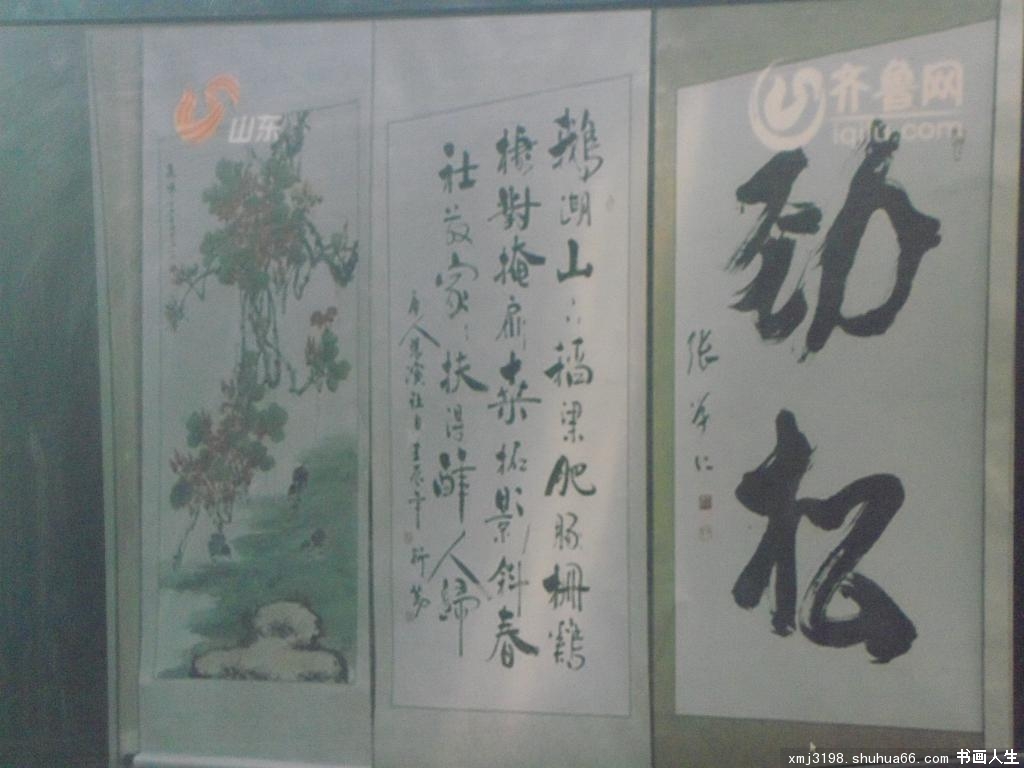 山东
齐鲁网
iqilu.com
劲松
張 仁
鵝湖山下稻梁肥豚柵鷄
棲對掩扉桑柘影斜春
社散家々扶得醉人歸
唐人張演社日壬辰年
xmj3198.shuhua66.com 书画人生